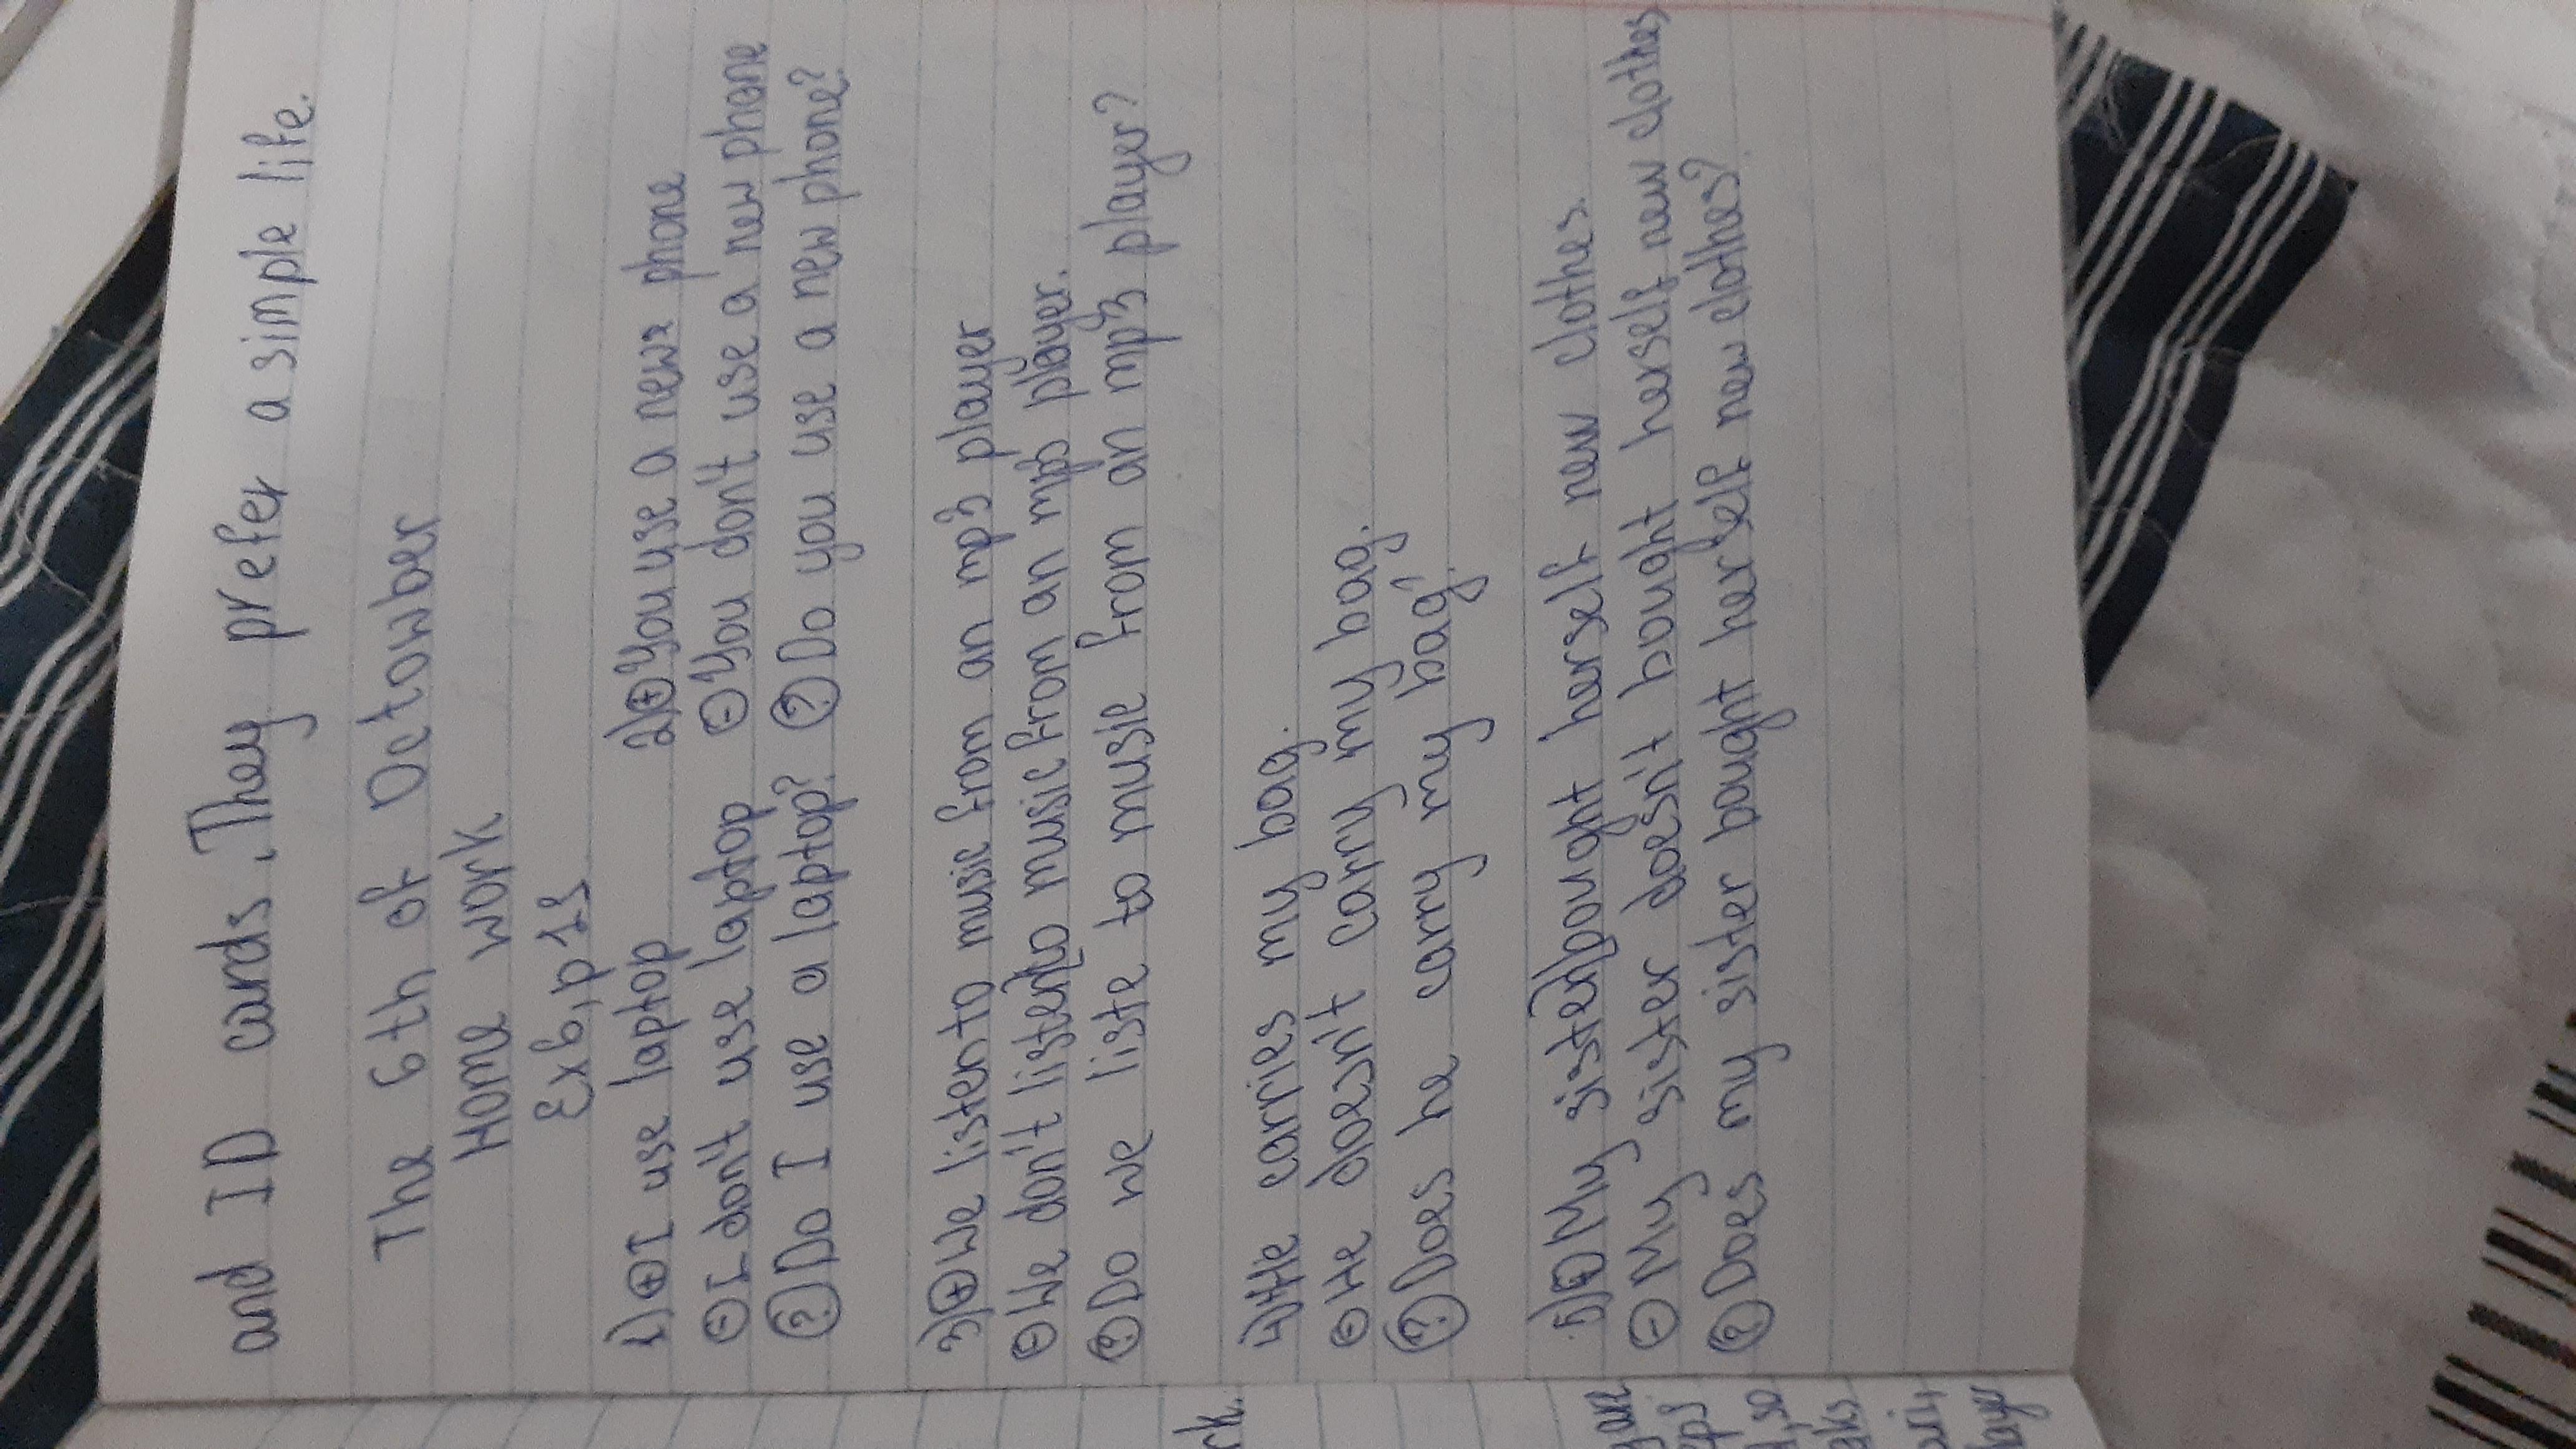 and ID cards. They prefer a simple life.
The 6th of Octowber
Home work
Ex6, p 15
1) ⊕ I use laptop 2) ⊕ You use a new phone
⊖ I don't use laptop ⊖ You don't use a new phone
? Do I use a laptop? ? Do you use a new phone?
3) ⊕ We listen to music from an mp3 player
⊖ We don't listen to music from an mp3 player.
? Do we liste to music from an mp3 player?
4) He carries my bag.
⊖ He doesn't carry my bag.
? Does he carry my bag?
5) ⊕ My sister bought herself new clothes.
⊖ My sister doesn't bought herself new clothes
? Does my sister bought herself new clothes?